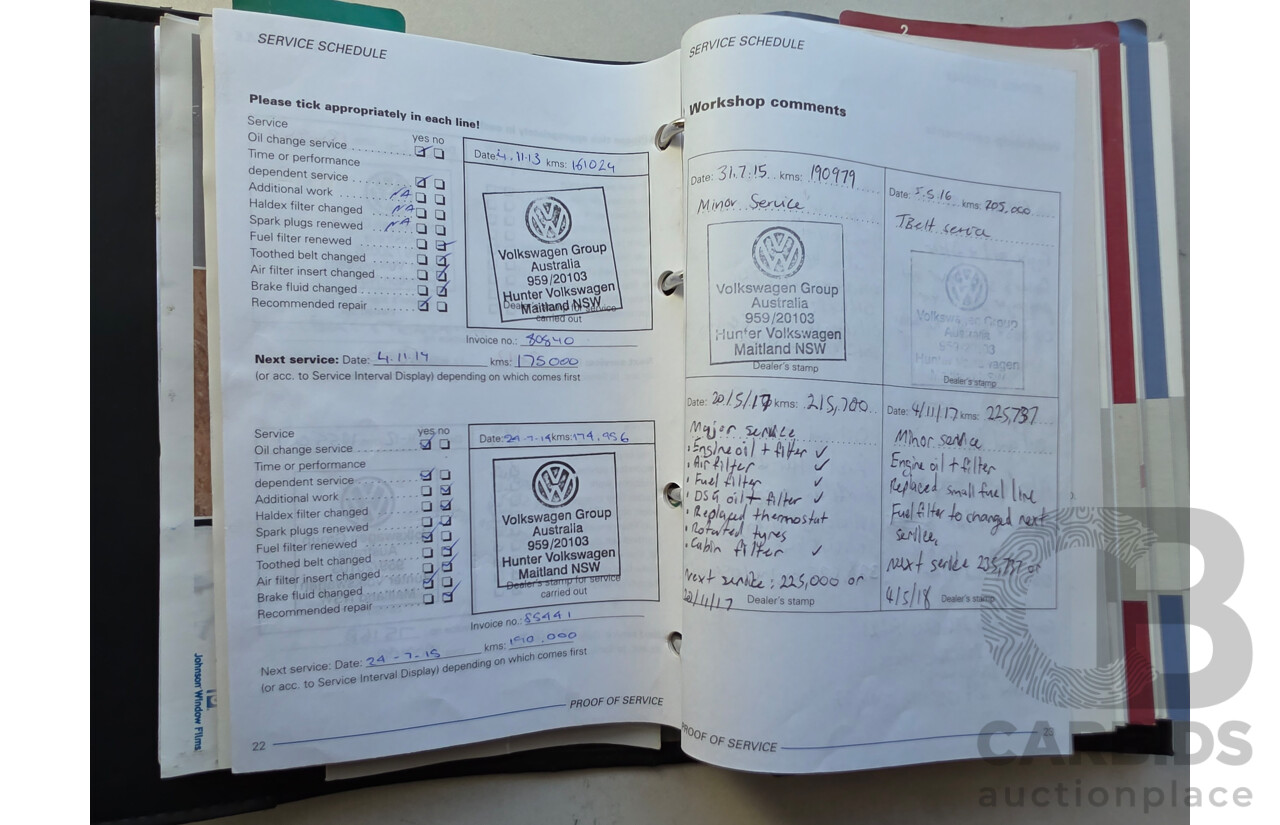 SERVICE SCHEDULE
Please tick appropriately in each line!
Service yes no
Oil change service
Time or performance
dependent service
Additional work NA
Haldex filter changed NA
Spark plugs renewed NA
Fuel filter renewed
Toothed belt changed
Air filter insert changed
Brake fluid changed
Recommended repair
Date: 4.11.13 kms: 161024
Volkswagen Group
Australia
959/20103
Hunter Volkswagen
Maitland NSW
Dealer's stamp for service
carried out
Invoice no.: 80840
Next service: Date: 4.11.14 kms: 175000
(or acc. to Service Interval Display) depending on which comes first
Service yes no
Oil change service
Time or performance
dependent service
Additional work
Haldex filter changed
Spark plugs renewed
Fuel filter renewed
Toothed belt changed
Air filter insert changed
Brake fluid changed
Recommended repair
Date: 24-7-14 kms: 174.956
Volkswagen Group
Australia
959/20103
Hunter Volkswagen
Maitland NSW
Dealer's stamp for service
carried out
Invoice no.: 85441
Next service: Date: 24-7-15 kms: 190.000
(or acc. to Service Interval Display) depending on which comes first
PROOF OF SERVICE
22
Johnson Window Films
2
SERVICE SCHEDULE
Workshop comments
Date: 31.7.15 kms: 190979
Minor Service
Volkswagen Group
Australia
959/20103
Hunter Volkswagen
Maitland NSW
Dealer's stamp
Date: 5.5.16 kms: 205,000
TBelt service
Volkswagen Group
Australia
959/20103
Hunter Volkswagen
Maitland NSW
Dealer's stamp
Date: 20/5/17 kms: 215,700
Major service
• Engine oil + filter ✓
• Air filter ✓
• Fuel filter ✓
• DSG oil + filter ✓
• Replaced thermostat
• Rotated tyres
• Cabin filter ✓
Next service: 225,000 or
20/11/17 Dealer's stamp
Date: 4/11/17 kms: 225,737
Minor service
Engine oil + filter
Replaced small fuel line
Fuel filter to changed next
service.
Next service 235,737 or
4/5/18 Dealer's stamp
PROOF OF SERVICE
23
CARBIDS
auctionplace